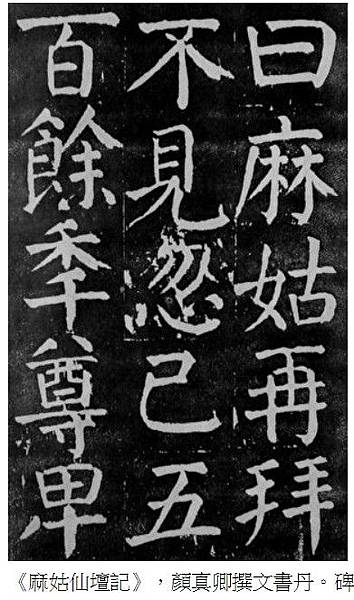 曰麻姑再拜
不見忽已五
百餘秊尊卑
《麻姑仙壇記》，顏真卿撰文書丹。碑